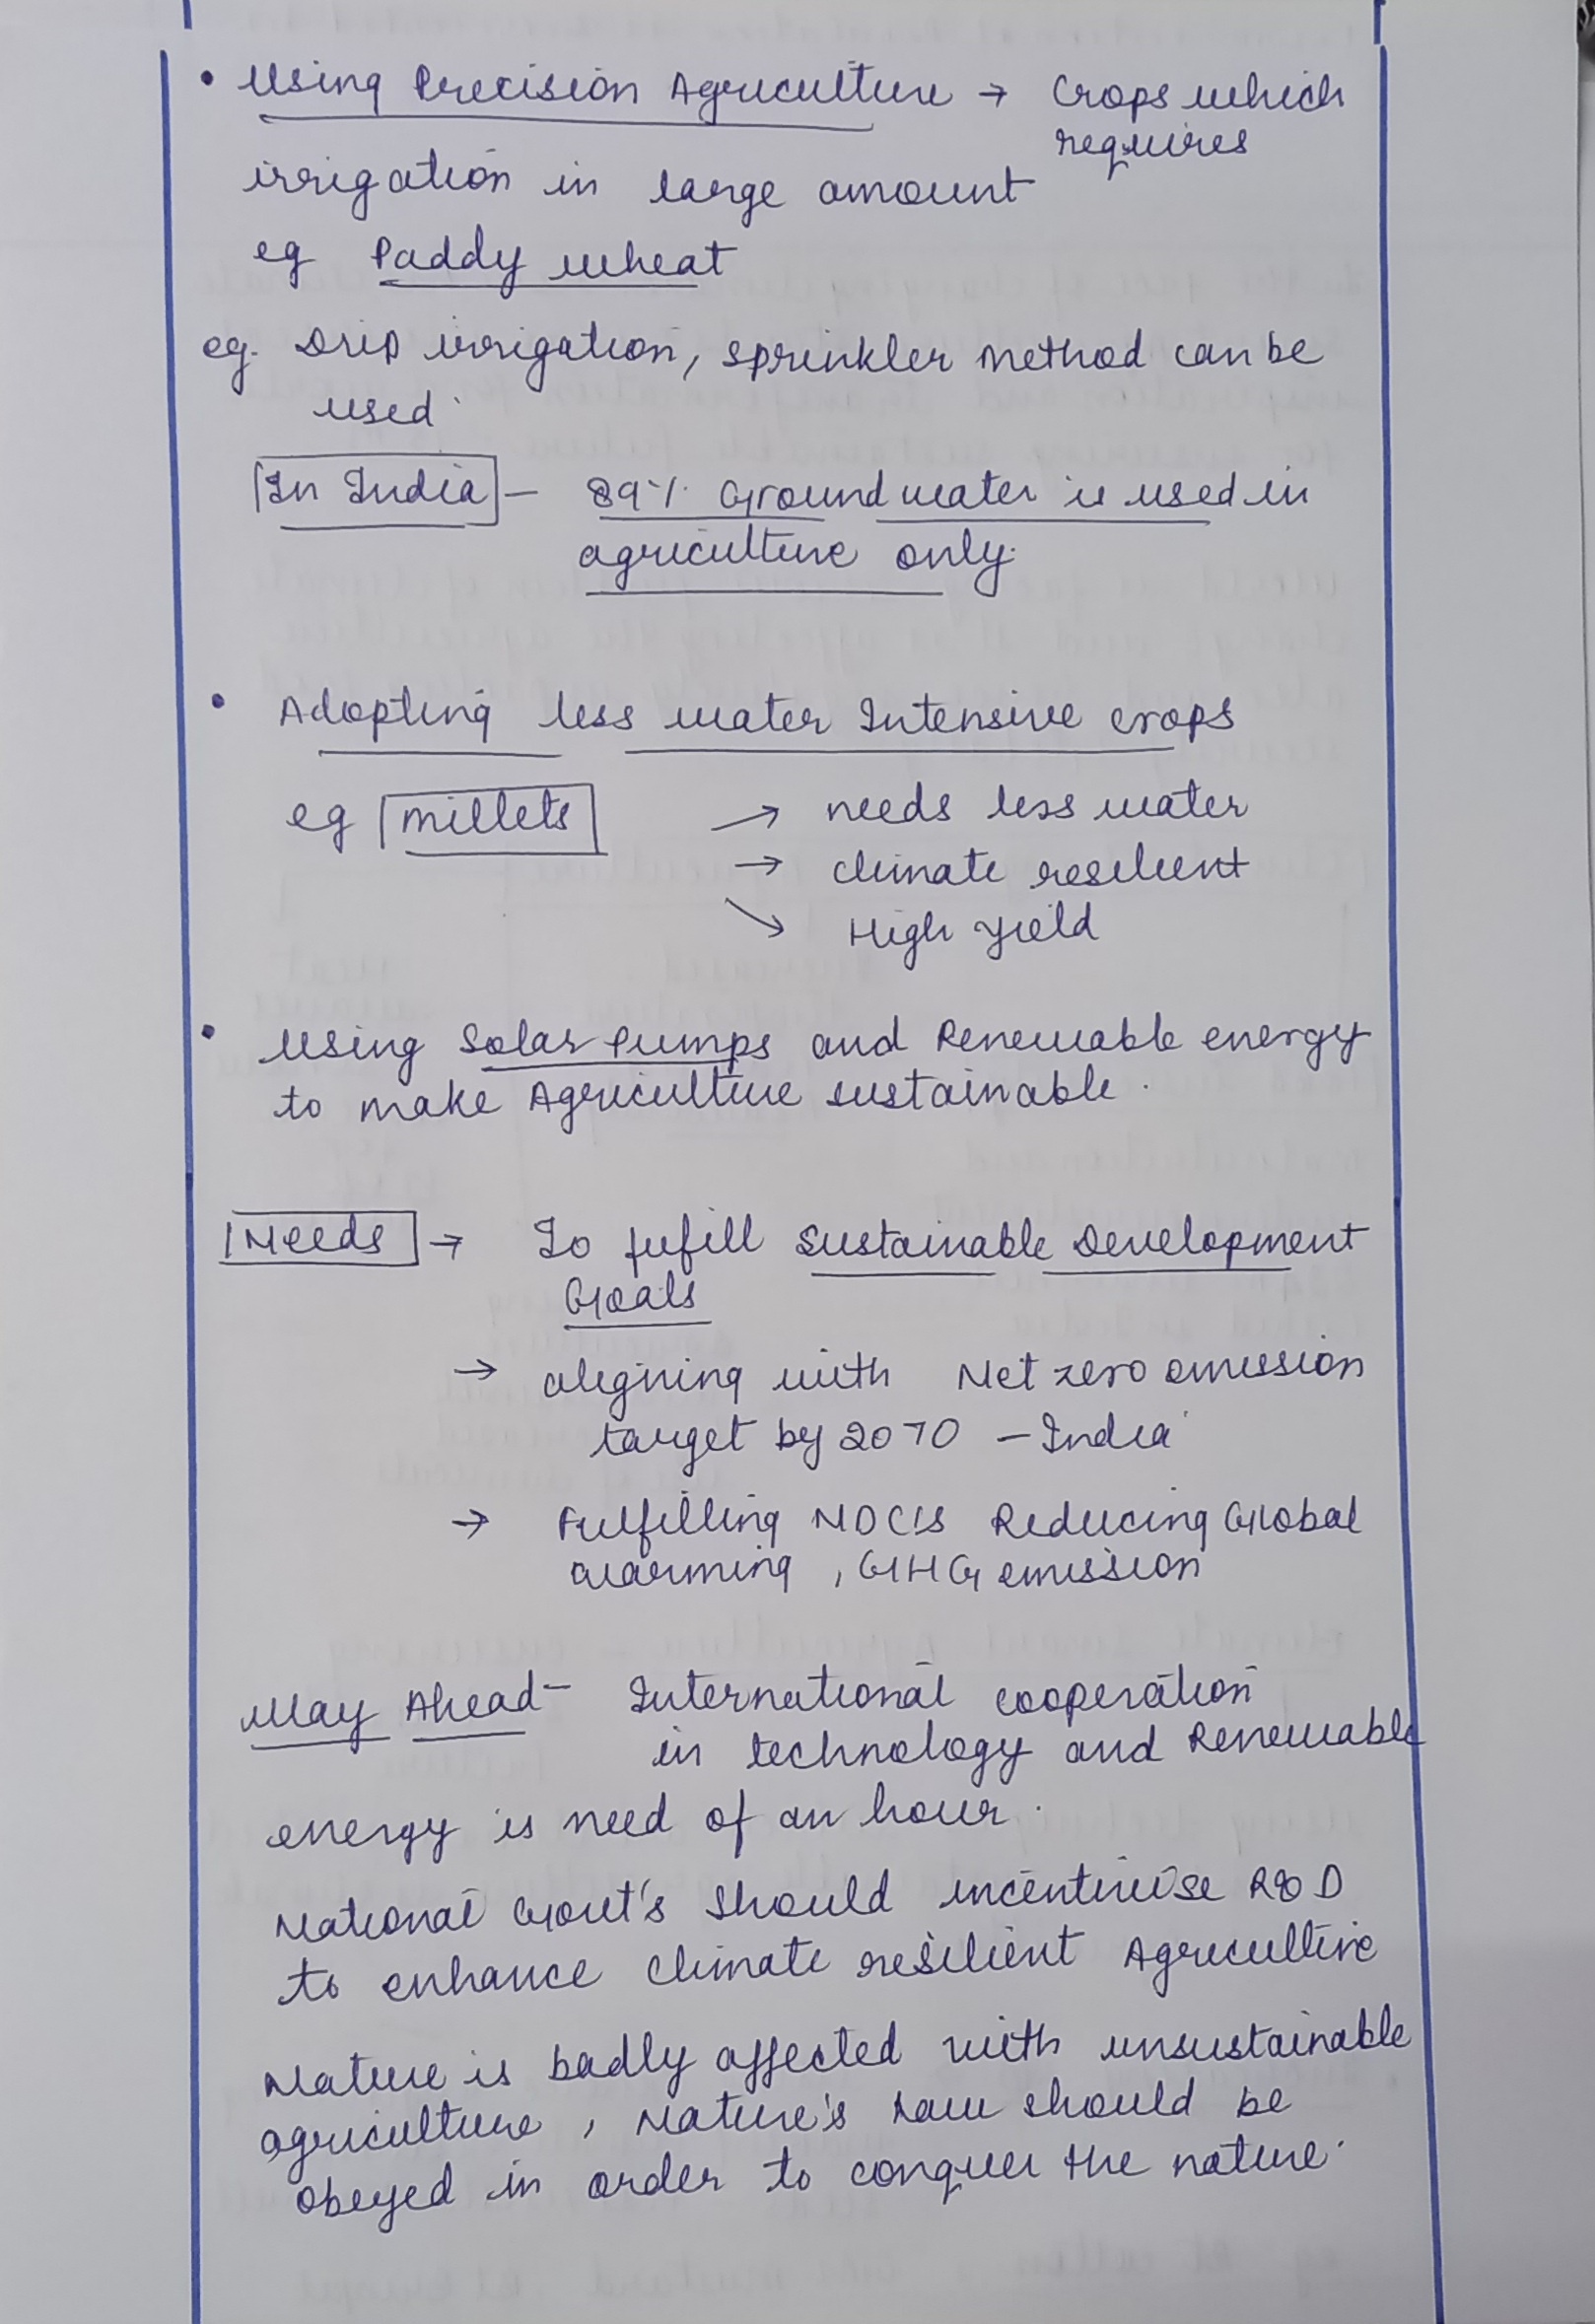 • Using Precision Agriculture → Crops which
requires
irrigation in large amount
eg Paddy wheat
eg. Drip irrigation, sprinkler method can be
used.
In India – 89% Ground water is used in
agriculture only.
• Adopting less water Intensive crops
eg millets → needs less water
→ climate resilient
↘ High yield
• Using Solar Pumps and Renewable energy
to make Agriculture sustainable.
Needs → To fufill Sustainable Development
Goals
→ aligning with Net zero emission
target by 2070 – India
→ Fulfilling NDC's Reducing Global
warming, GHG emission
Way Ahead – International cooperation
in technology and Renewable
energy is need of an hour.
National Govt's should incentivise R&D
to enhance climate resilient Agriculture
Nature is badly affected with unsustainable
agriculture, Nature's Law should be
obeyed in order to conquer the nature.